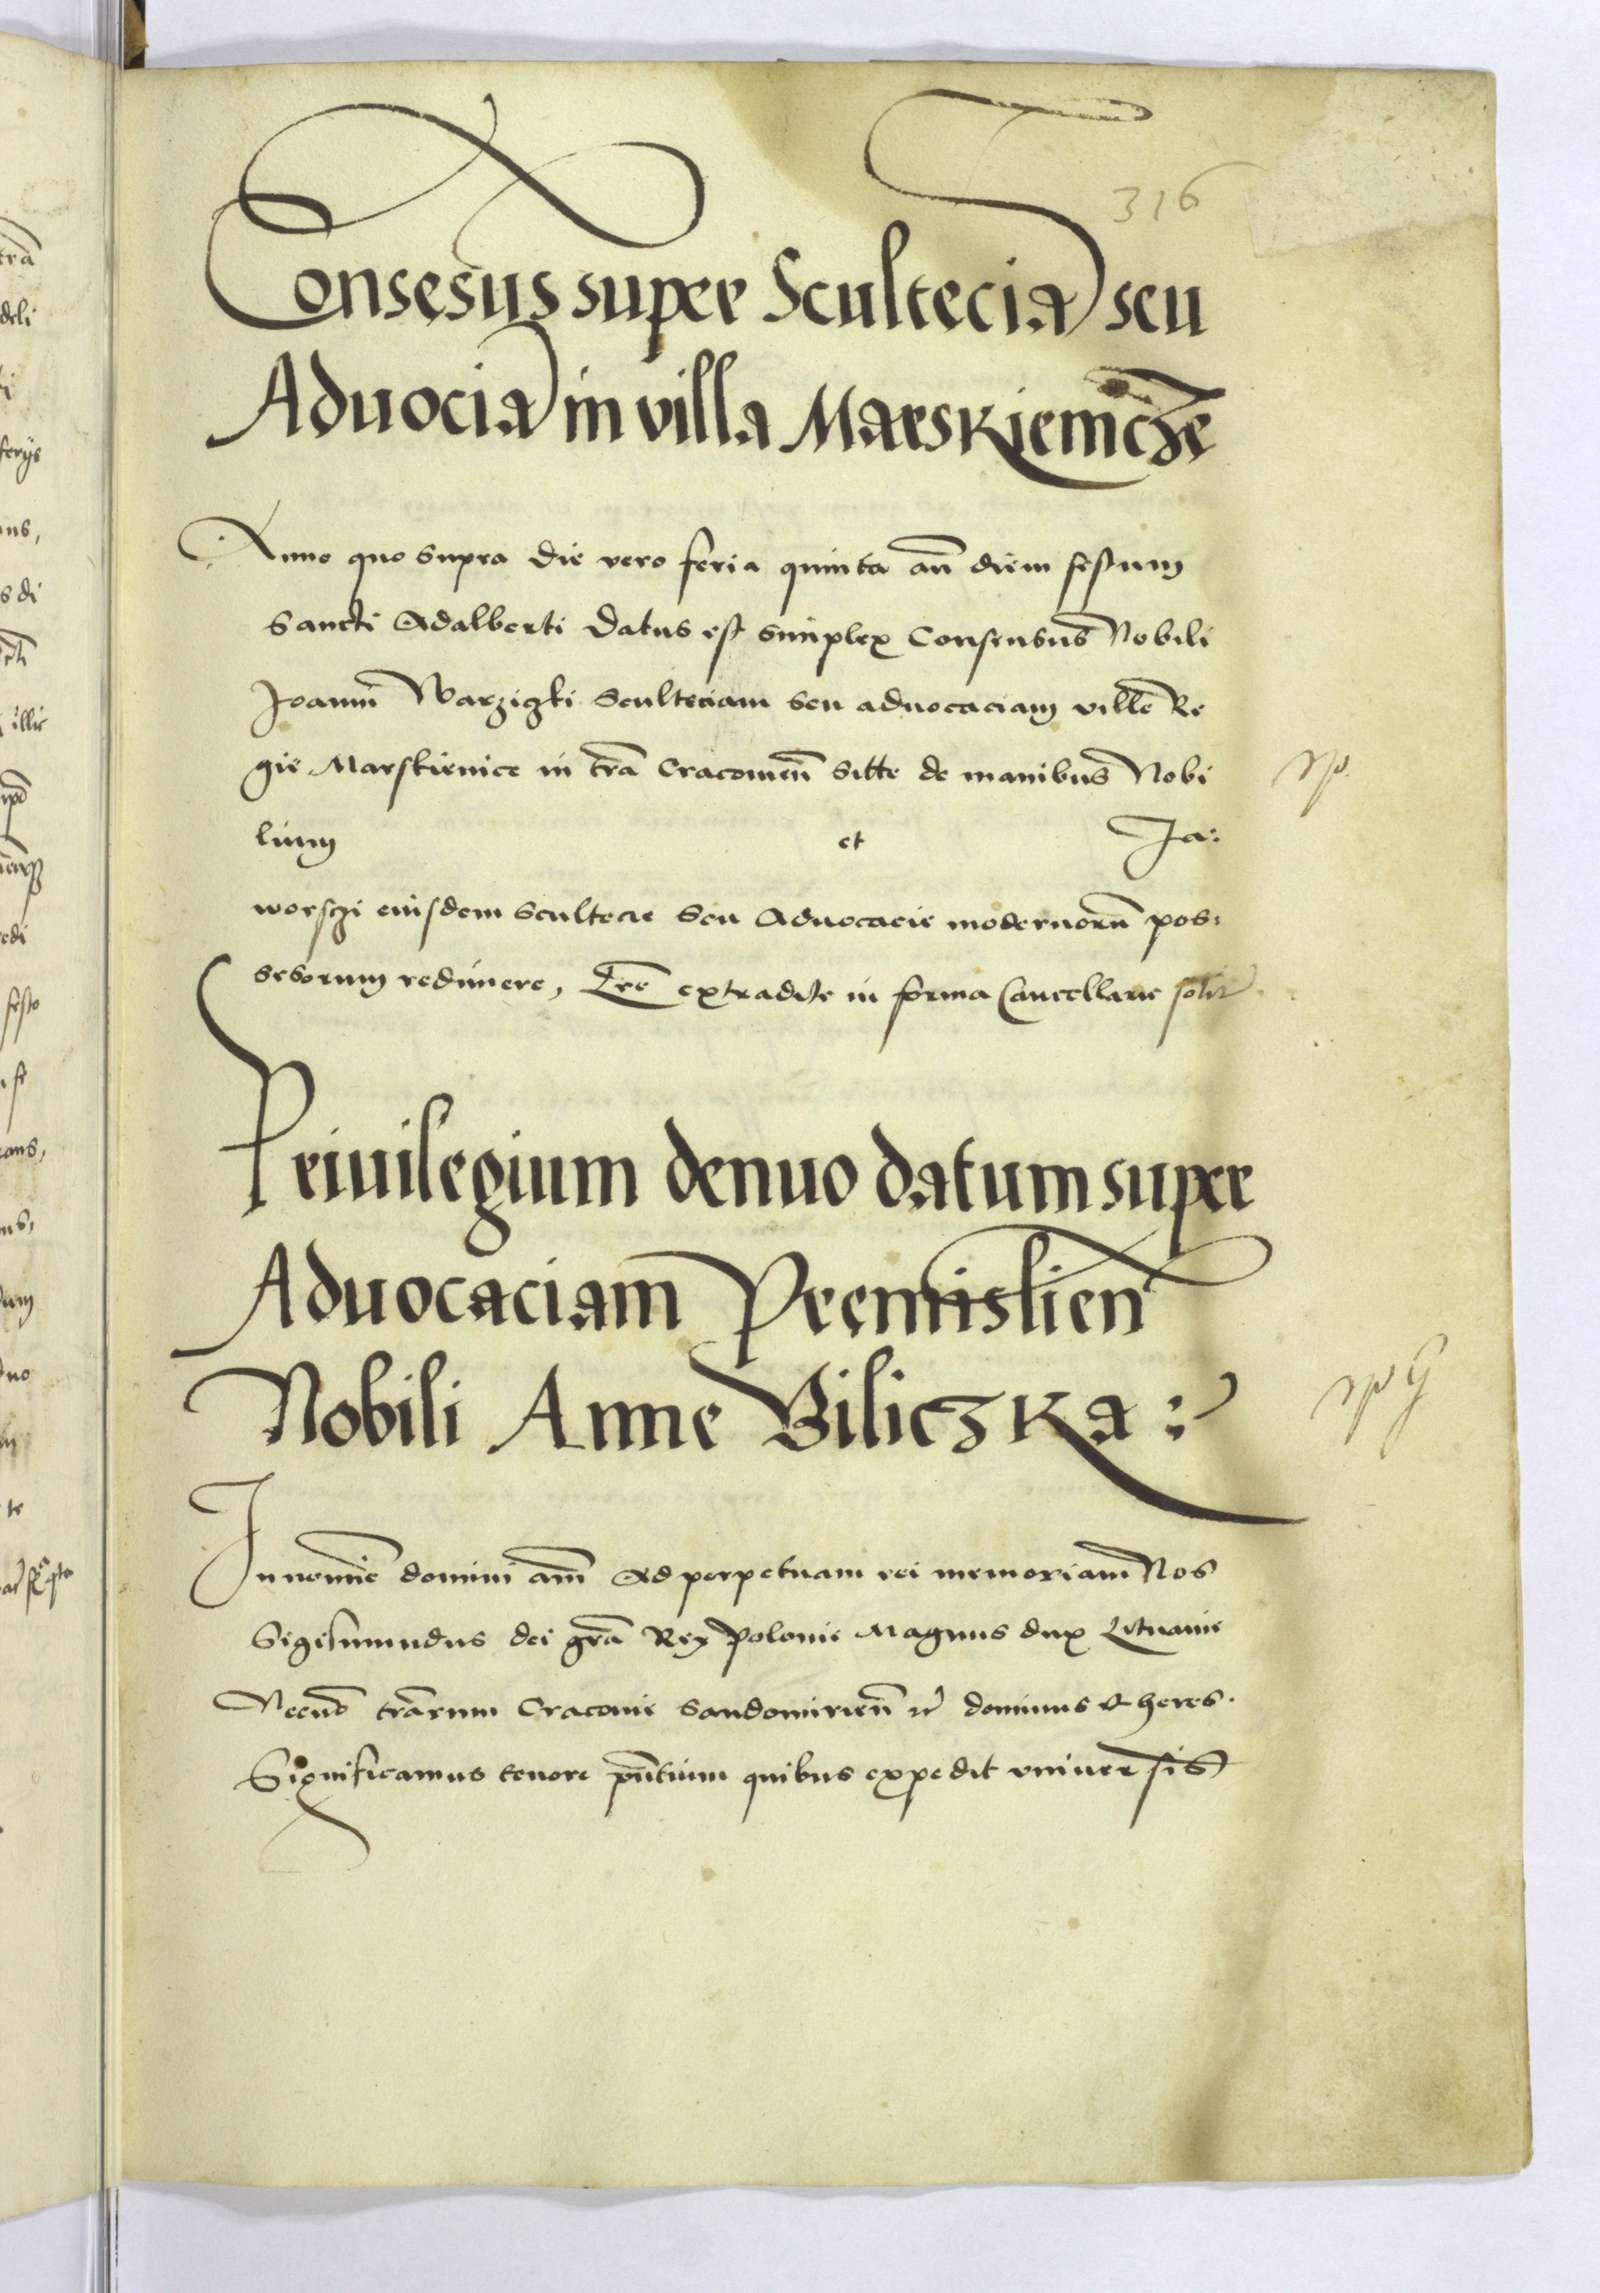 316
Consesus super Sculteciā seu
Aduociā in villa Marskiemcze
Anno quo supra die vero feria quinta añ diem festum
Sancti Adalberti datus est simplex Consensus Nobili
Joanni Warziczki Sculteciam seu aduocaciam ville Re
gie Marskienice in trā Cracouień Sitte de manibus Nobi
lium et Ja:
worszi eiusdem Scultecie Seu Aduocacie modernorū pos:
sesorum redimere, Lrē extradite in forma Cancellarie solit
Priuilegium denuo datum super
Aduocaciam Premislień
Nobili Anne Biliczka:
In nomīe domini amē Ad perpetuam rei memoriam Nos
Sigismundus dei grā Rex Polonie Magnus dux Lituanie
Necnō trārum Cracouie Sandomirień dominus & heres.
Significamus tenore pñtium quibus expedit vniuersis